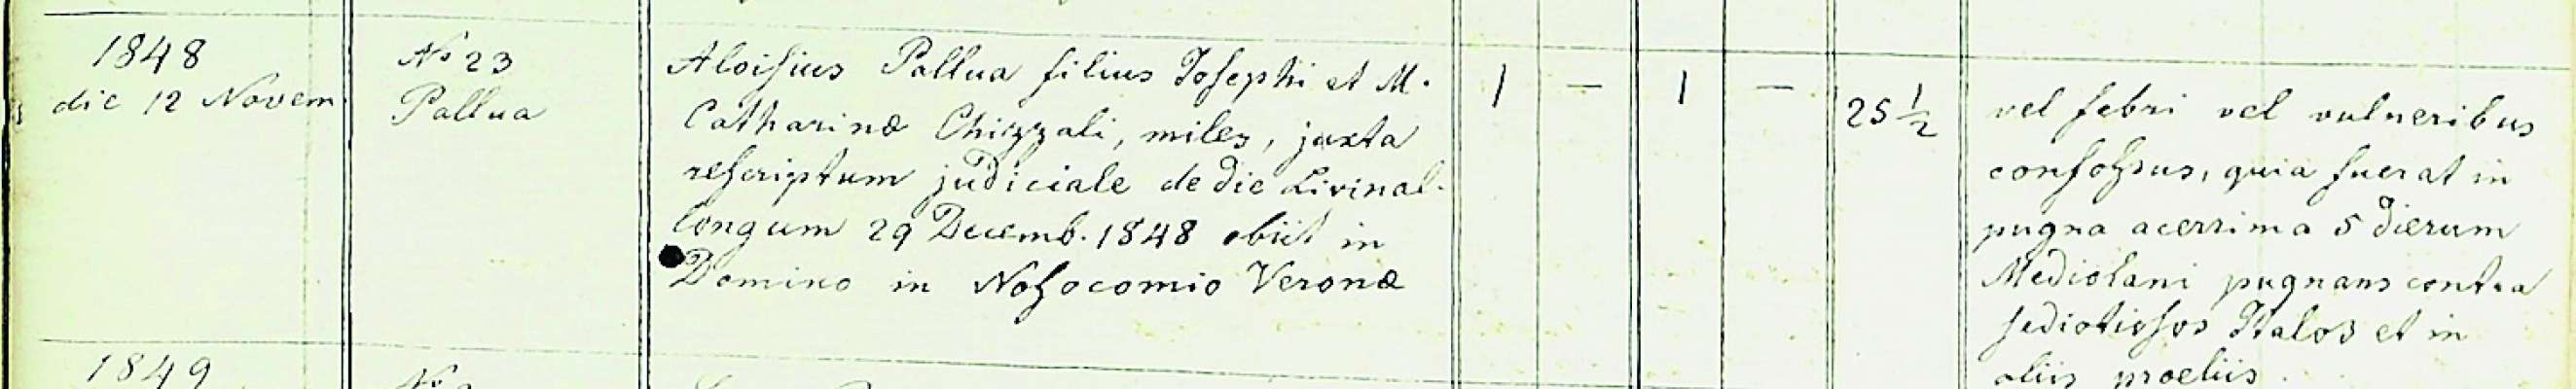 1848
die 12 Novem.
No 23
Pallua
Aloisius Pallua filius Josephi et M.
Catharinæ Chizzali, miles, juxta
rescriptum judiciale de die Livinal-
longum 29 Decemb. 1848 obiit in
Domino in Nosocomio Veronæ
1 — 1 —
25 1/2
vel febri vel vulneribus
confossus, quia fuerat in
pugna acerrima 5 dierum
Mediolani pugnans contra
sediotissos Italos et in
aliis proeliis.
1849
No